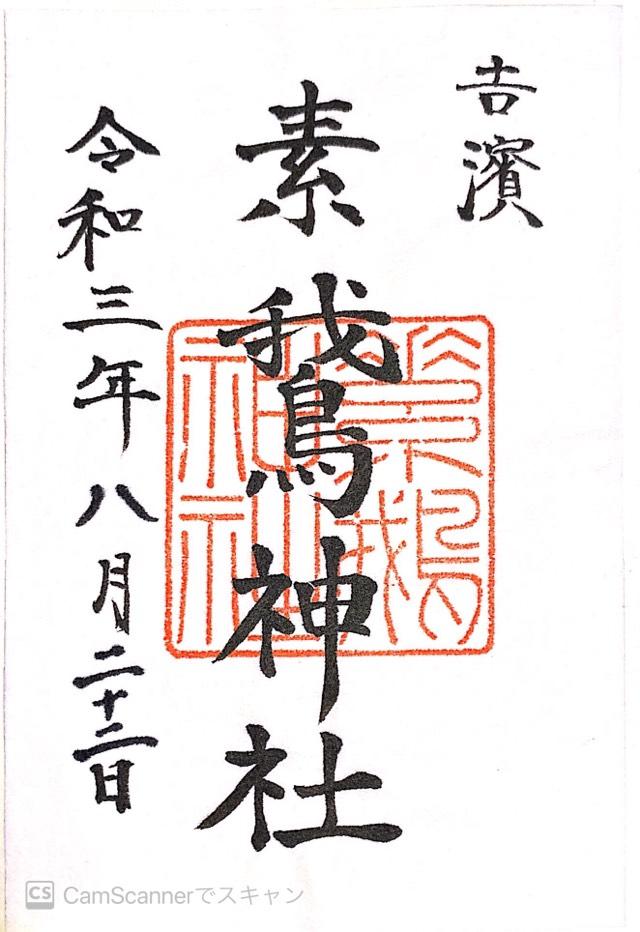 𠮷濱
素鵞神社
素鵝
神社
令和三年八月二十二日
CS CamScannerでスキャン